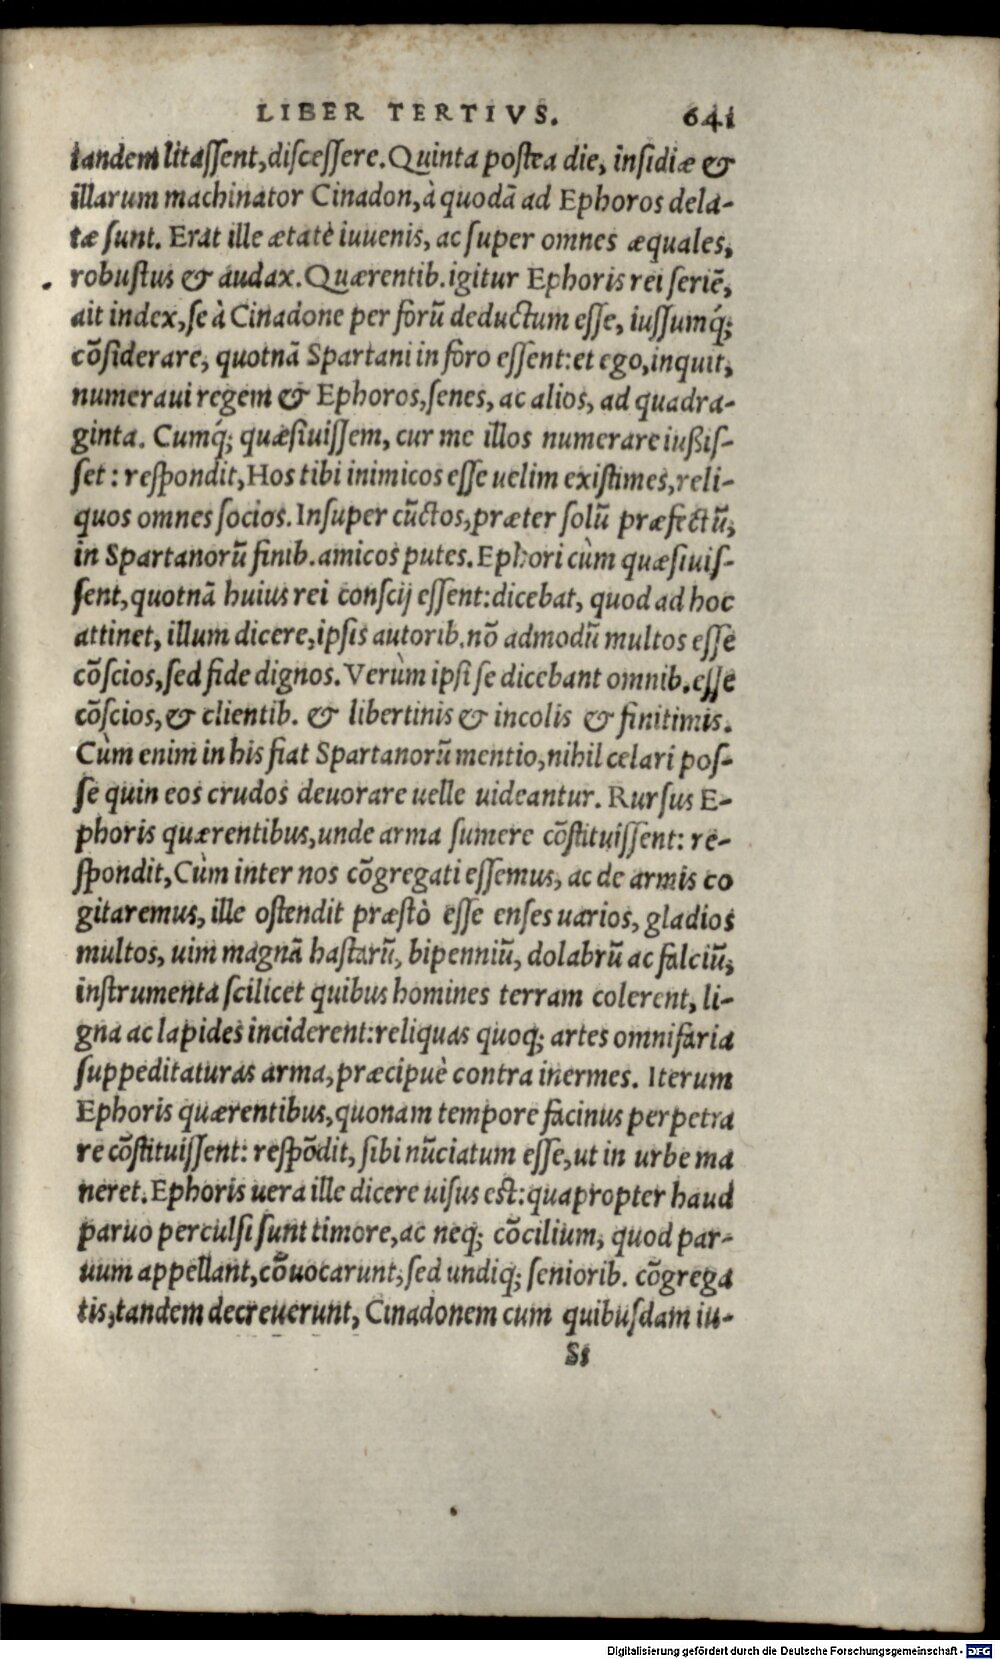 LIBER TERTIVS. 641
tandem litassent, discessere. Quinta postea die, insidiæ &
illarum machinator Cinadon, à quodã ad Ephoros dela-
tæ sunt. Erat ille ætate iuuenis, ac super omnes æquales,
robustus & audax. Quærentib. igitur Ephoris rei seriẽ,
ait index, se à Cinadone per forũ deductum esse, iussumq́;
cõsiderare, quotnã Spartani in foro essent: et ego, inquit,
numeraui regem & Ephoros, senes, ac alios, ad quadra-
ginta. Cumq́; quæsiuissem, cur me illos numerare iußis-
set: respondit, Hos tibi inimicos esse uelim existimes, reli-
quos omnes socios. Insuper cũctos, præter solũ præfectũ,
in Spartanorũ finib. amicos putes. Ephori cùm quæsiuis-
sent, quotnã huius rei conscij essent: dicebat, quod ad hoc
attinet, illum dicere, ipsis autorib. nõ admodũ multos esse
cõscios, sed fide dignos. Verùm ipsi se dicebant omnib. esse
cõscios, & clientib. & libertinis & incolis & finitimis.
Cùm enim in his fiat Spartanorũ mentio, nihil celari pos-
se quin eos crudos deuorare uelle uideantur. Rursus E-
phoris quærentibus, unde arma sumere cõstituissent: re-
spondit, Cùm inter nos cõgregati essemus, ac de armis co
gitaremus, ille ostendit præstò esse enses uarios, gladios
multos, uim magnã hastarũ, bipenniũ, dolabrũ ac falciũ,
instrumenta scilicet quibus homines terram colerent, li-
gna ac lapides inciderent: reliquas quoq; artes omnifaria
suppeditaturas arma, præcipuè contra inermes. Iterum
Ephoris quærentibus, quonam tempore facinus perpetra
re cõstituissent: respõdit, sibi nũciatum esse, ut in urbe ma
neret. Ephoris uera ille dicere uisus est: quapropter haud
paruo perculsi sunt timore, ac neq; cõcilium, quod par-
uum appellant, cõuocarunt, sed undiq; seniorib. cõgrega
tis, tandem decreuerunt, Cinadonem cum quibusdam iu-
Ss
Digitalisierung gefördert durch die Deutsche Forschungsgemeinschaft - DFG